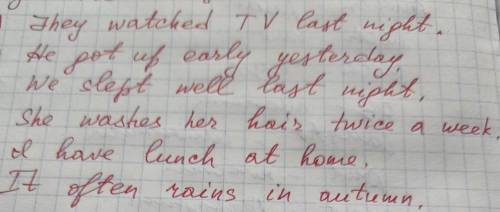 They watched TV last night.
He got up early yesterday.
We slept well last night.
She washes her hair twice a week.
I have lunch at home.
It often rains in autumn.